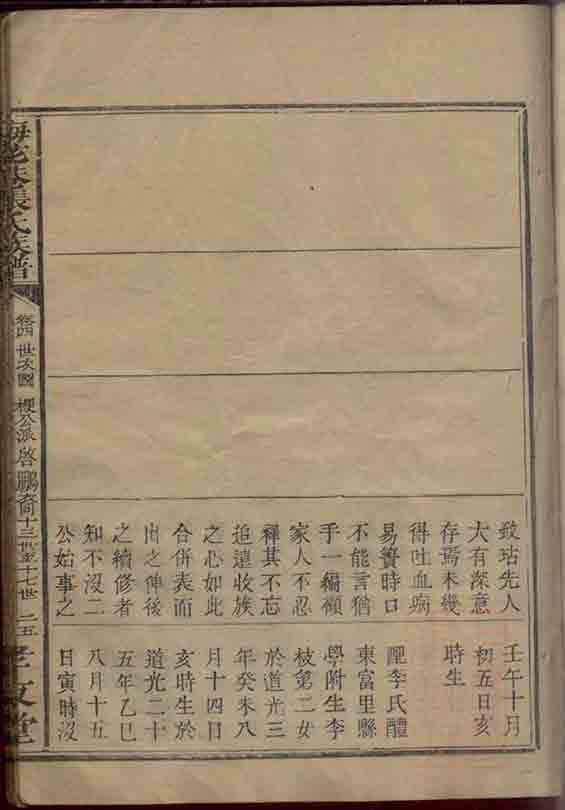 致玷先人
大有深意
存焉未幾
得吐血病
易簀時口
不能言猶
手一編顧
家人不忍
釋其不忘
追遠收族
之心如此
合併表而
出之俾後
之續修者
知不沒二
公始事之
壬午十月
初五日亥
時生
配李氏醴
東富里縣
學附生李
枝第二女
於道光三
年癸未八
月十四日
亥時生於
道光二十
五年乙巳
八月十五
日寅時沒
張氏族譜
卷四 世次圖 梗公派啓鵬裔十三世至十七世 二五
孝友堂